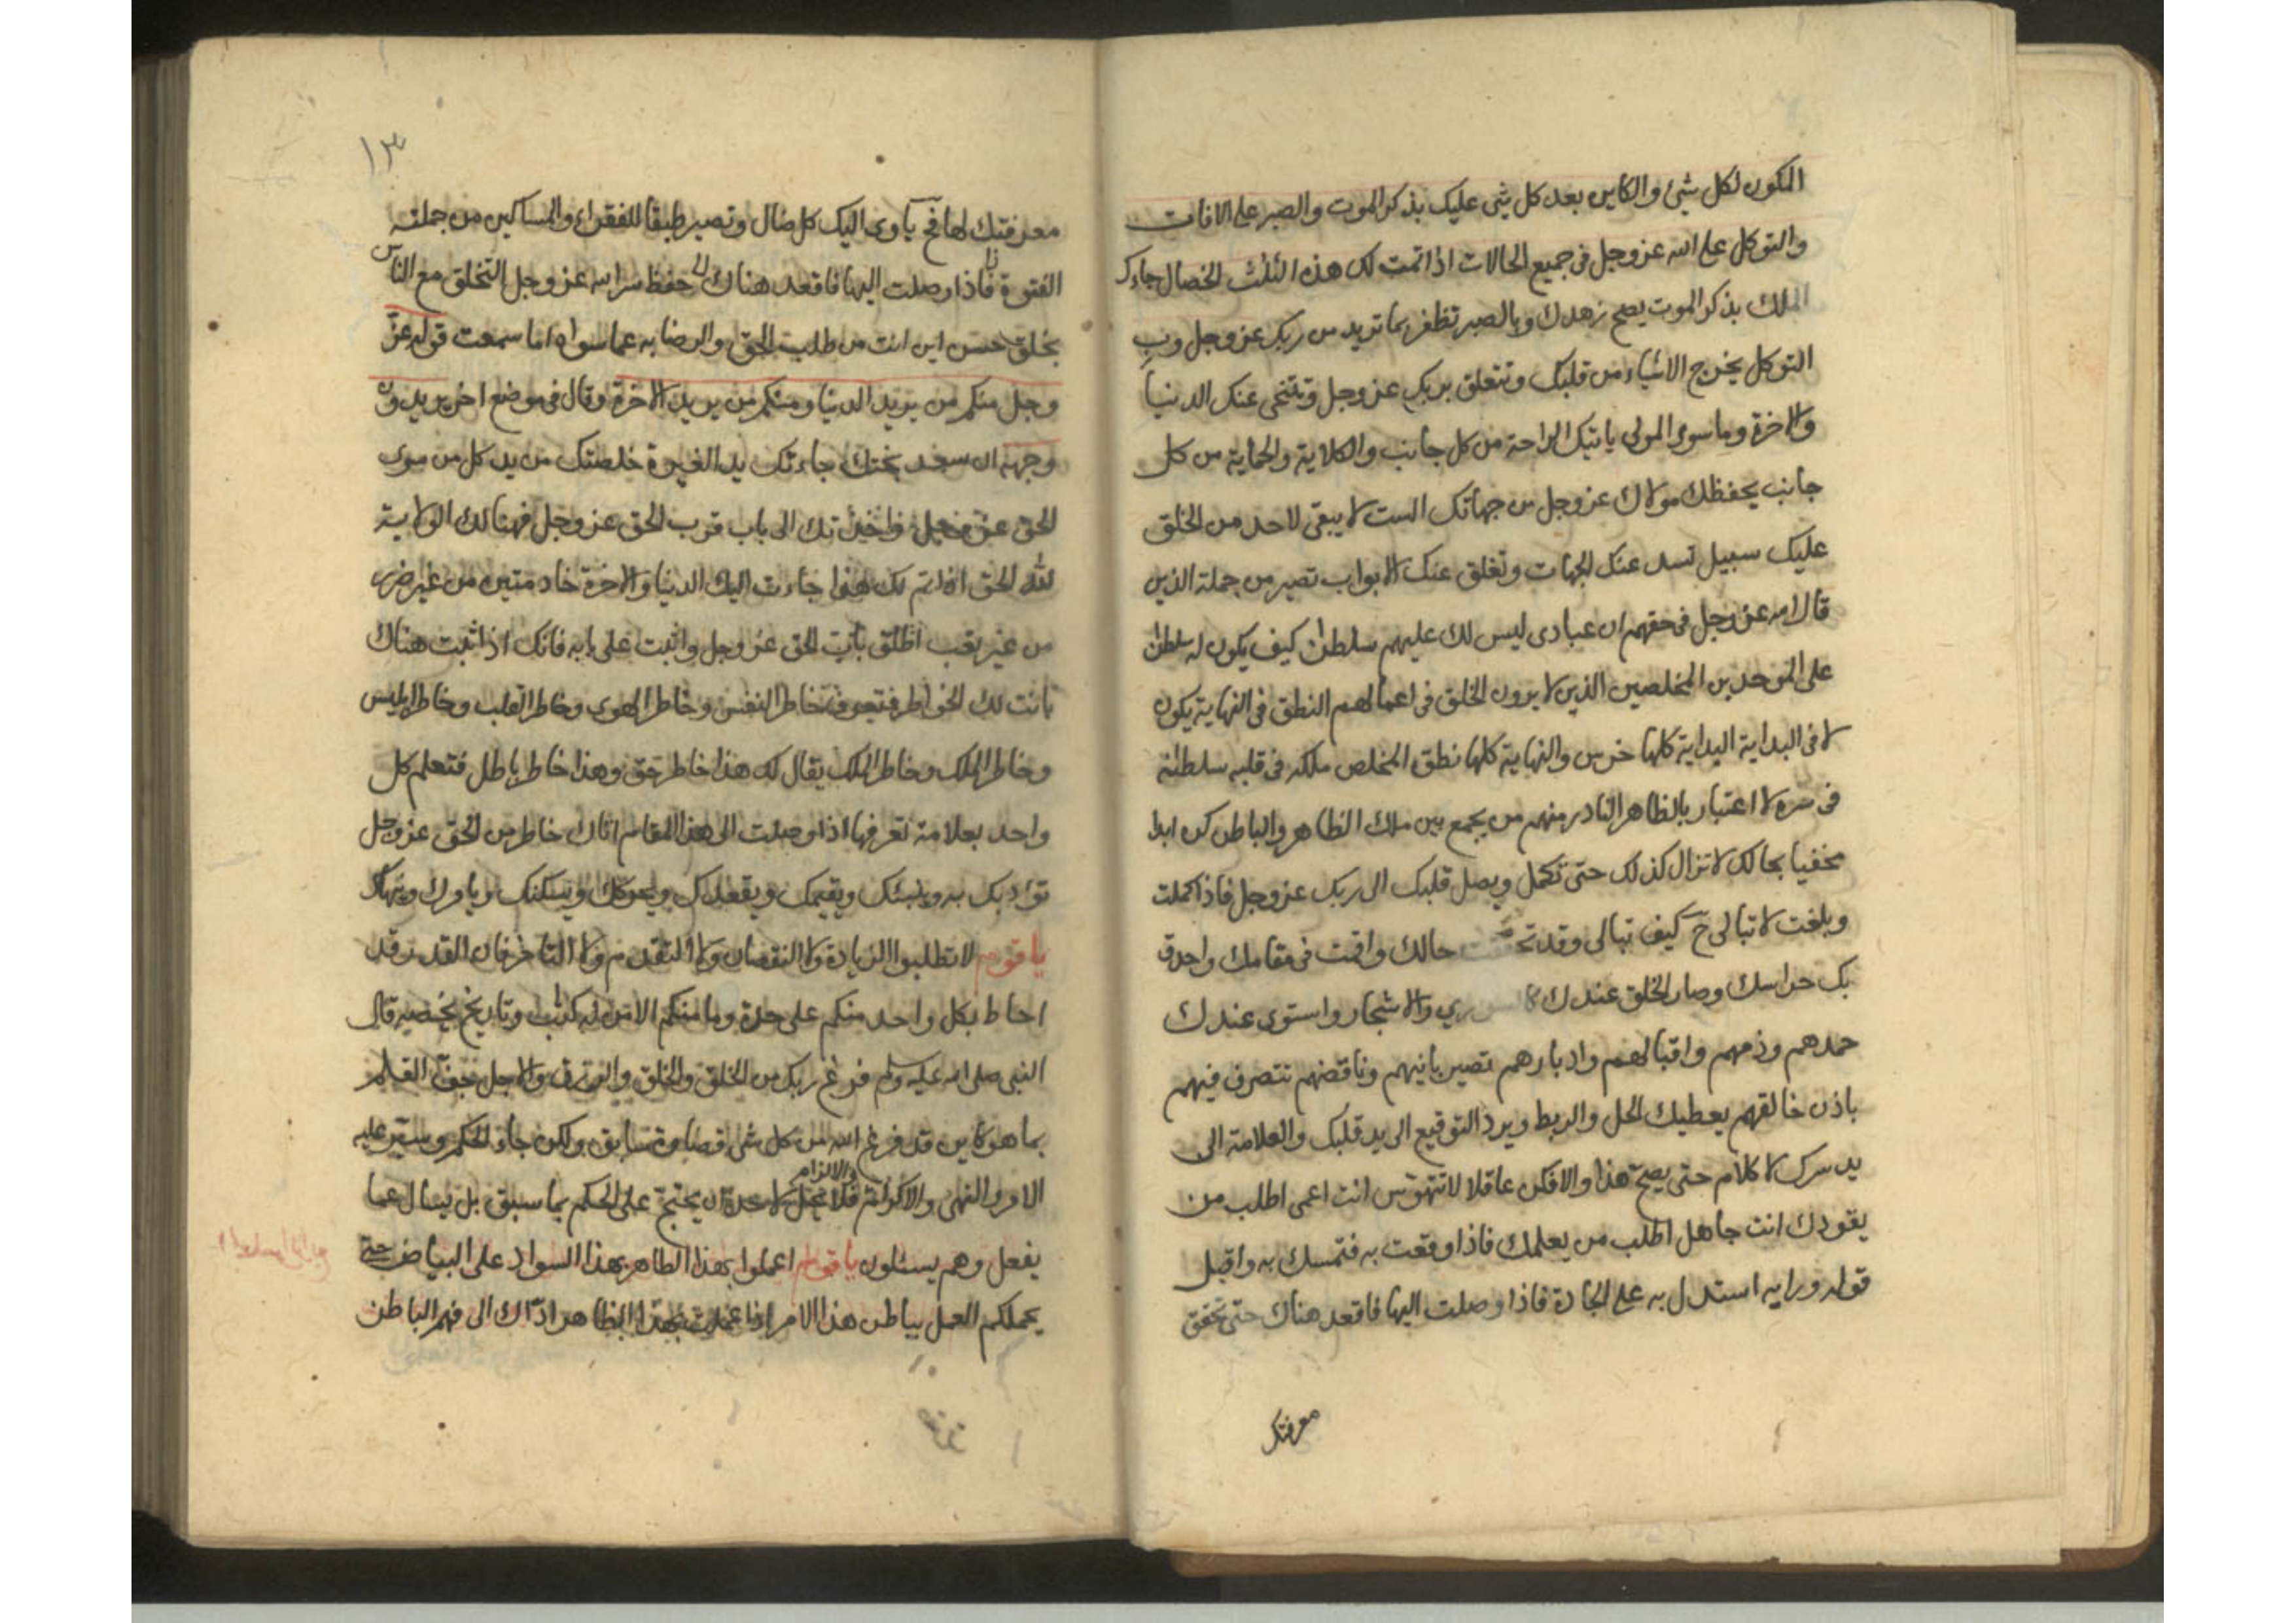 المكون لكل شيئ والكاين بعد كل شئ عليك بذكر الموت والصبر على الافات
والتوكل على الله عز وجل فى جميع الحالات اذا تمت لك هذه الثلث الخصال جاءك
الملك بذكر الموت يصح زهدك وبالصبر تظفر بما تريد من ربك عز وجل وب
التوكل يخرج الاشياء من قلبك وتتعلق بربك عز وجل ويتنحى عنك الدنيا
والاخرة وما سوى المولى ياتيك الراحة من كل جانب والكلاية والحماية من كل
جانب يحفظك مولاك عز وجل من جهاتك الست لا يبقى لاحد من الخلق
عليك سبيل تسد عنك الجهات وتغلق عنك الابواب تصير من جملة الذين
قال الله عز وجل فى حقهم ان عبادى ليس لك عليهم سلطن كيف يكون له سلطن
على الموحدين المخلصين الذين لا يرون الخلق فى اعمالهم النطق فى النهاية يكون
لا فى البداية البداية كلها خرس والنهاية كلها نطق المخلص ملكه فى قلبه سلطنه
فى سره لا اعتبار بالظاهر النادر منهم من يجمع بين ملك الظاهر والباطن كن ابدا
مخفيا بحالك لا تزال كذلك حتى تكمل ويصل قلبك الى ربك عز وجل فاذا كملت
وبلغت لا تبالى ح كيف تبالى وقد تحققت حالك واقمت فى مقامك واحدق
بك حراسك وصار الخلق عندك كالسواري والاشجار واستوى عندك
حمدهم وذمهم واقبالهم وادبارهم تصير بانيهم وناقضهم تتصرف فيهم
باذن خالقهم يعطيك الحل والربط ويرد التوقيع الى يد قلبك والعلامة الى
يد سرك لا كلام حتى يصح هذا والا فكن عاقلا لا تتهوس انت اعمى اطلب من
يقودك انت جاهل اطلب من يعلمك فاذا وقعت به فتمسك به واقبل
قوله ورايه استدل به على الجادة فاذا وصلت اليها فاقعد هناك حتى تحقق
معرفتك
١٣
معرفتك لها فح ياوى اليك كل ضال وتصير طبقا للفقراء والمساكين من جملة
الفتوة فاذا وصلت اليها فاقعد هناك حفظ سر الله عز وجل التخلق مع الناس
بخلق حسن اين انت من طلب الحق والرضا به عما سواه اما سمعت قوله عز
وجل منكم من يريد الدنيا ومنكم من يريد الاخرة وقال فى موضع اخر يريدون
وجهه ان سعد بختك جاءتك يد الغيرة خلصتك من يد كل من سوى
الحق عز وجل واخذتك الى باب قرب الحق عز وجل فهنالك الولاية
لله الحق اذا تم لك هذا جاءت اليك الدنيا والاخرة خادمتين من غير ضرر
من غير تعب اطلق باب الحق عز وجل واثبت على بابه فانك اذا ثبت هناك
بانت لك الخواطر فتعرف خاطر النفس وخاطر الهوى وخاطر القلب وخاطر ابليس
وخاطر الملك وخاطر الملك يقال لك هذا خاطر حق وهذا خاطر باطل فتعلم كل
واحد بعلامة تعرفها اذا وصلت الى هذا المقام اتاك خاطر من الحق عز وجل
يؤدبك به ويثبتك ويقيمك ويقعدك ويحركك ويسكنك ويامرك وينهاك
يا قوم لا تطلبوا الزيادة ولا النقصان ولا التقدم ولا التاخر فان القدر قد
احاط بكل واحد منكم على حدة وما منكم الا من له كتاب وتاريخ يخصيه قال
النبى صلى الله عليه وسلم فرغ ربك من الخلق والخلق والرزق والاجل جف القلم
بما هو كاين قد فرغ الله من كل شئ قضاؤه سابق ولكن جاء الحكم وستر عليه
الامر والنهى والاكرام والالزام فلا يحل لاحد ان يحتج على الحكم بما سبق بل يسال عما
يفعل وهم يسئلون يا قوم اعملوا بهذا الظاهر بهذا السواد على البياض حتى
يحملكم العمل بباطن هذا الامر اذا عملت بهذا الظاهر اداك الى فهم الباطن